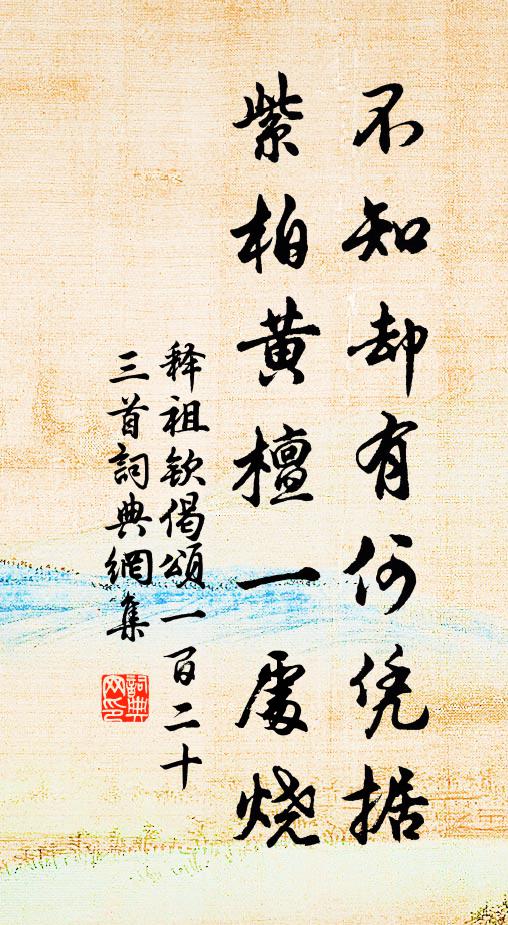 不知却有何凭据
紫柏黄檀一處烧
释祖钦偈頌一百二十
三首詞典網集
詞典網印